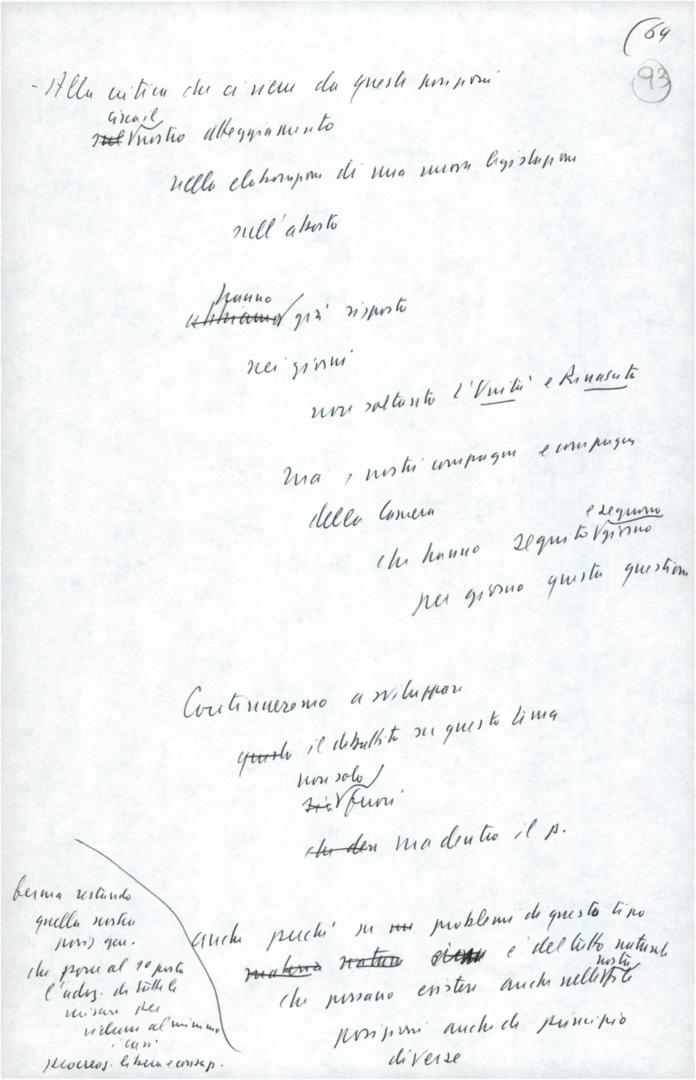 (64
93
- Alla critica che ci viene da queste posizioni
circa il
sul nostro atteggiamento
nella elaborazione di una nuova legislazione
sull'aborto
hanno
abbiamo già risposto
nei giorni
non soltanto l'Unità e Rinascita
ma i nostri compagni e compagne
della Camera
e seguono
che hanno seguito giorno
per giorno questa questione
Continueremo a sviluppare
questo il dibattito su questo tema
non solo
sia fuori
che den ma dentro il p.
anche perché su problemi di questo tipo
materia natura è del tutto naturale
nostre
che possano esistere anche nelle file
posizioni anche di principio
diverse
ferma restando
quella nostra
posiz. gen.
che pone al 1º posto
l'adoz. di tutte le
misure per
ridurre al minimo
i casi
procreaz. libera e consap.